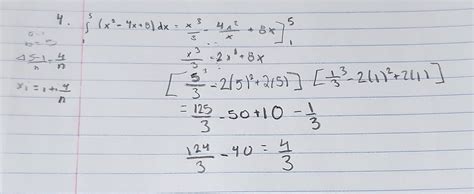 4. ∫₁⁵ (x² - 4x + 8) dx = x³/3 - 4x²/x + 8x ]₁⁵
Δ 5-1/n = 4/n
x³/3 - 2x² + 8x
xᵢ = 1 + 4/n
[ 5³/3 - 2(5)² + 2(5) ] [ 1/3³ - 2(1)² + 2(1) ]
= 125/3 - 50 + 10 - 1/3
124/3 - 40 = 4/3